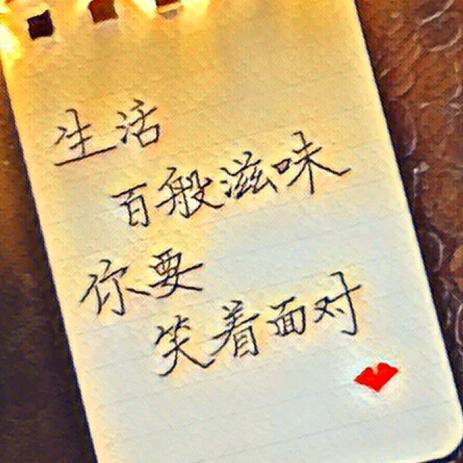 生活
百般滋味
你要
笑着面对